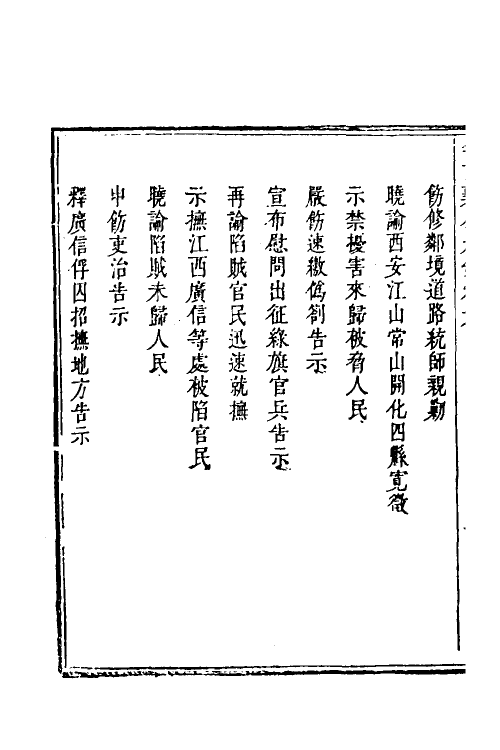 飭修鄰境道路統師親勦
曉諭西安江山常山開化四縣寬徵
示禁擾害來歸被脅人民
嚴飭速繳僞劄告示
宣布慰問出征綠旗官兵告示
再諭陷賊官民迅速就撫
示撫江西廣信等處被陷官民
曉諭陷賊未歸人民
申飭吏治告示
釋廣信俘囚招撫地方告示